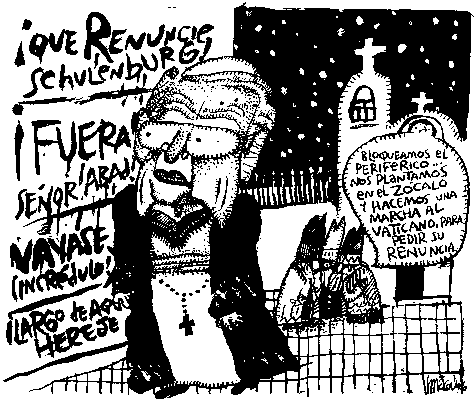 ¡QUE RENUNCIE
SCHULENBURG!
¡FUERA
SEÑOR ABAD!
VAYASE
¡INCREDULO!
¡LARGO de AQUI
HEREJE
BLOQUEAMOS EL
PERIFERICO..
NOS PLANTAMOS
EN EL ZOCALO
Y HACEMOS UNA
MARCHA AL
VATICANO, PARA
PEDIR SU
RENUNCIA